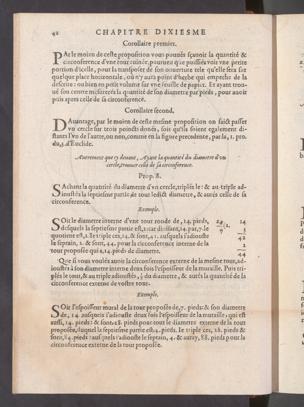 42 CHAPITRE DIXIESME
Corollaire premier.
PAr le moien de ceste proposition vous pouués sçauoir la quantité &
circonference d'vne tour ruinée, pourueu que puissiés voir vne petite
portion d'icelle, pour la transporter de son ouuerture telle qu'elle sera sur
quelque place horizontale, où n'y aura point d'herbe qui empesche de la
descrire: ou bien en petit volume sur vne fueille de papier. Et ayant trou-
ué son centre mesurerés la quantité de son diametre par pieds, pour auoir
puis apres celle de sa circonference.
Corollaire second.
DAuantage, par le moien de ceste mesme proposition on faict passer
vn cercle sur trois poincts donnés, soit qu'ils soient egalement di-
stants l'vn de l'autre, ou non, comme en la figure precedente, par la, 1. pro.
du, 3. d'Euclide.
Autrement que cy deuant, Ayant la quantité du diametre d'vn
cercle, trouuer celle de sa circonference.
Prop. 8.
SAchant la quantité du diametre d'vn cercle, triplés le: & au triple ad-
ioustés la septiesme partie de tout ledict diametre, & aurés celle de sa
circonference.
Exemple.
SOit le diametre interne d'vne tour ronde de, 14. pieds,
desquels la septiesme partie est, 2: car diuisant, 14. par, 7. le
quotient est, 2. Le triple est, 14, & sont, 42. ausquels i'adiouste
le septain, 2. & sont, 44. pour la circonference interne de la
tour proposée qui a, 14. pieds de diametre.
14
3
42
2
44
Que si vous voulés auoir la circonference externe de la mesme tour, ad-
ioustés à son diametre interne deux fois l'espoisseur de la muraille. Puis tri-
plés le tout, & au triple adioustés, 1/7 du diametre, & aurés la quantité de
circonference externe de vostre tour.
Exemple.
SOit l'espoisseur moral de la tour proposée de, 7. pieds: & son diametre
de, 14. ausquels i'adiouste deux fois l'espoisseur de la muraille, qui est
aussi, 14. pieds: & sont, 28. pieds pour tout le diametre externe de la tour
proposée, duquel la septiesme partie est, 4. pieds. Le triple est, 28. pieds, &
sont, 84. pieds: ausquels i'adiouste le septain, 4. & auray, 88. pieds pour la
circonference externe de la tour proposée.